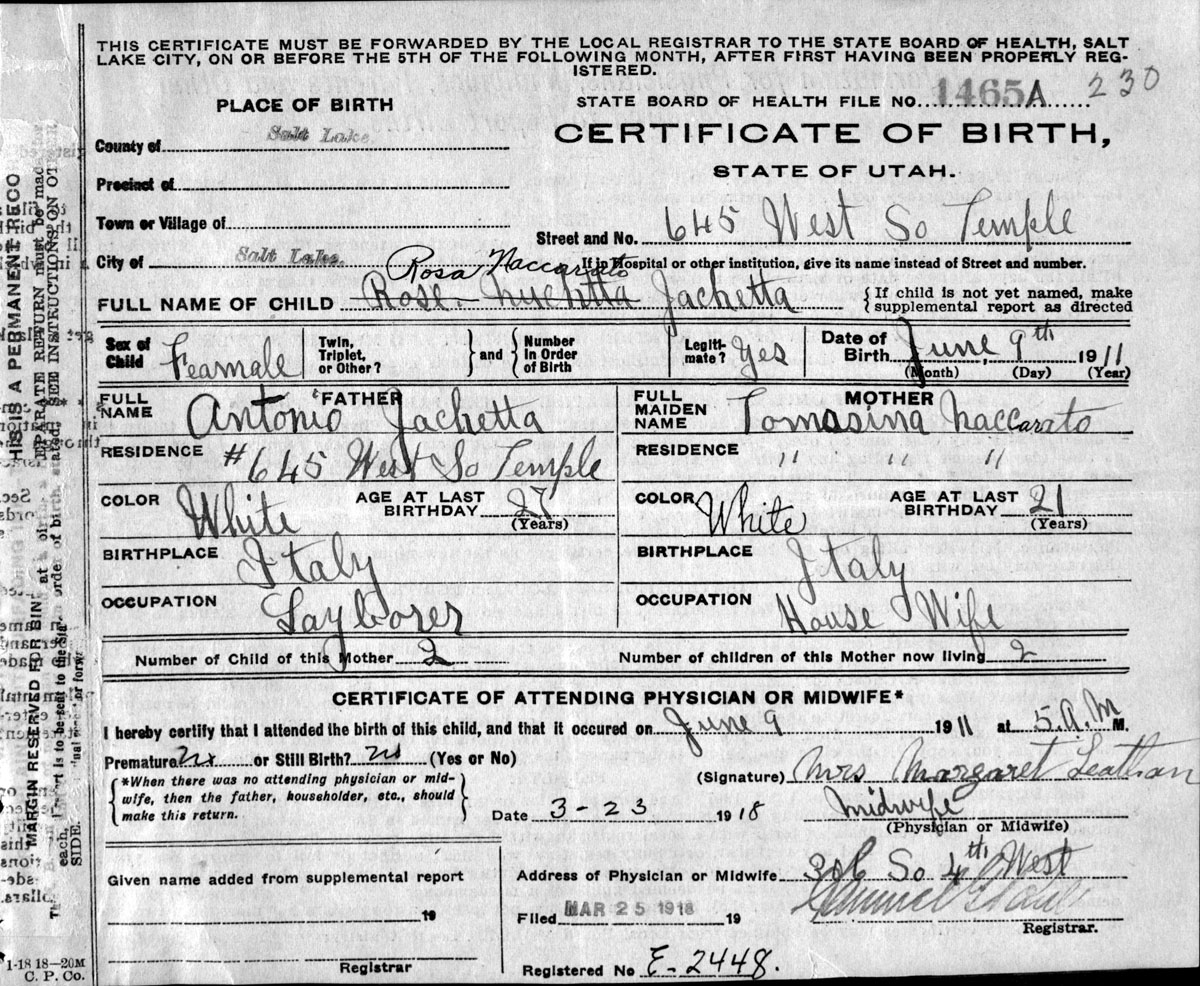 THIS CERTIFICATE MUST BE FORWARDED BY THE LOCAL REGISTRAR TO THE STATE BOARD OF HEALTH, SALT
LAKE CITY, ON OR BEFORE THE 5TH OF THE FOLLOWING MONTH, AFTER FIRST HAVING BEEN PROPERLY REG-
ISTERED.
PLACE OF BIRTH
STATE BOARD OF HEALTH FILE NO. 1465A 230
County of Salt Lake.
CERTIFICATE OF BIRTH,
STATE OF UTAH.
Precinct of
Town or Village of
Street and No. 645 West So Temple
City of Salt Lake.
If in Hospital or other institution, give its name instead of Street and number.
Rosa Naccarato
FULL NAME OF CHILD Rose Jachetta
{ If child is not yet named, make
supplemental report as directed
Sex of
Child Feamale
Twin,
Triplet,
or Other?
} and {
Number
in Order
of Birth
Legiti-
mate? Yes
Date of
Birth June 9th 1911
(Month) (Day) (Year)
FULL
NAME
FATHER
Antonio Jachetta
FULL
MAIDEN
NAME
MOTHER
Tomasina Naccarato
RESIDENCE #645 West So Temple
RESIDENCE " " "
COLOR White
AGE AT LAST
BIRTHDAY 27
(Years)
COLOR White
AGE AT LAST
BIRTHDAY 21
(Years)
BIRTHPLACE Italy
BIRTHPLACE Italy
OCCUPATION Layborer
OCCUPATION House Wife
Number of Child of this Mother 2
Number of children of this Mother now living 2
CERTIFICATE OF ATTENDING PHYSICIAN OR MIDWIFE*
I hereby certify that I attended the birth of this child, and that it occured on June 9 1911 at 5.A.M M.
Premature No or Still Birth? No (Yes or No)
{ *When there was no attending physician or mid-
wife, then the father, householder, etc., should
make this return. }
(Signature) Mrs Margaret Leatham
Date 3-23 1918
Midwife
(Physician or Midwife)
Given name added from supplemental report
19
Registrar
Address of Physician or Midwife 306 So 4th West
Filed MAR 25 1918 19
Registrar.
Registered No E-2448.
MARGIN RESERVED FOR BIN
HIS IS A PERMANENT RECO
EPARATE RETURN must be made
SEE INSTRUCTIONS ON OT
SIDE.
1-18 18—20M
C. P. Co.